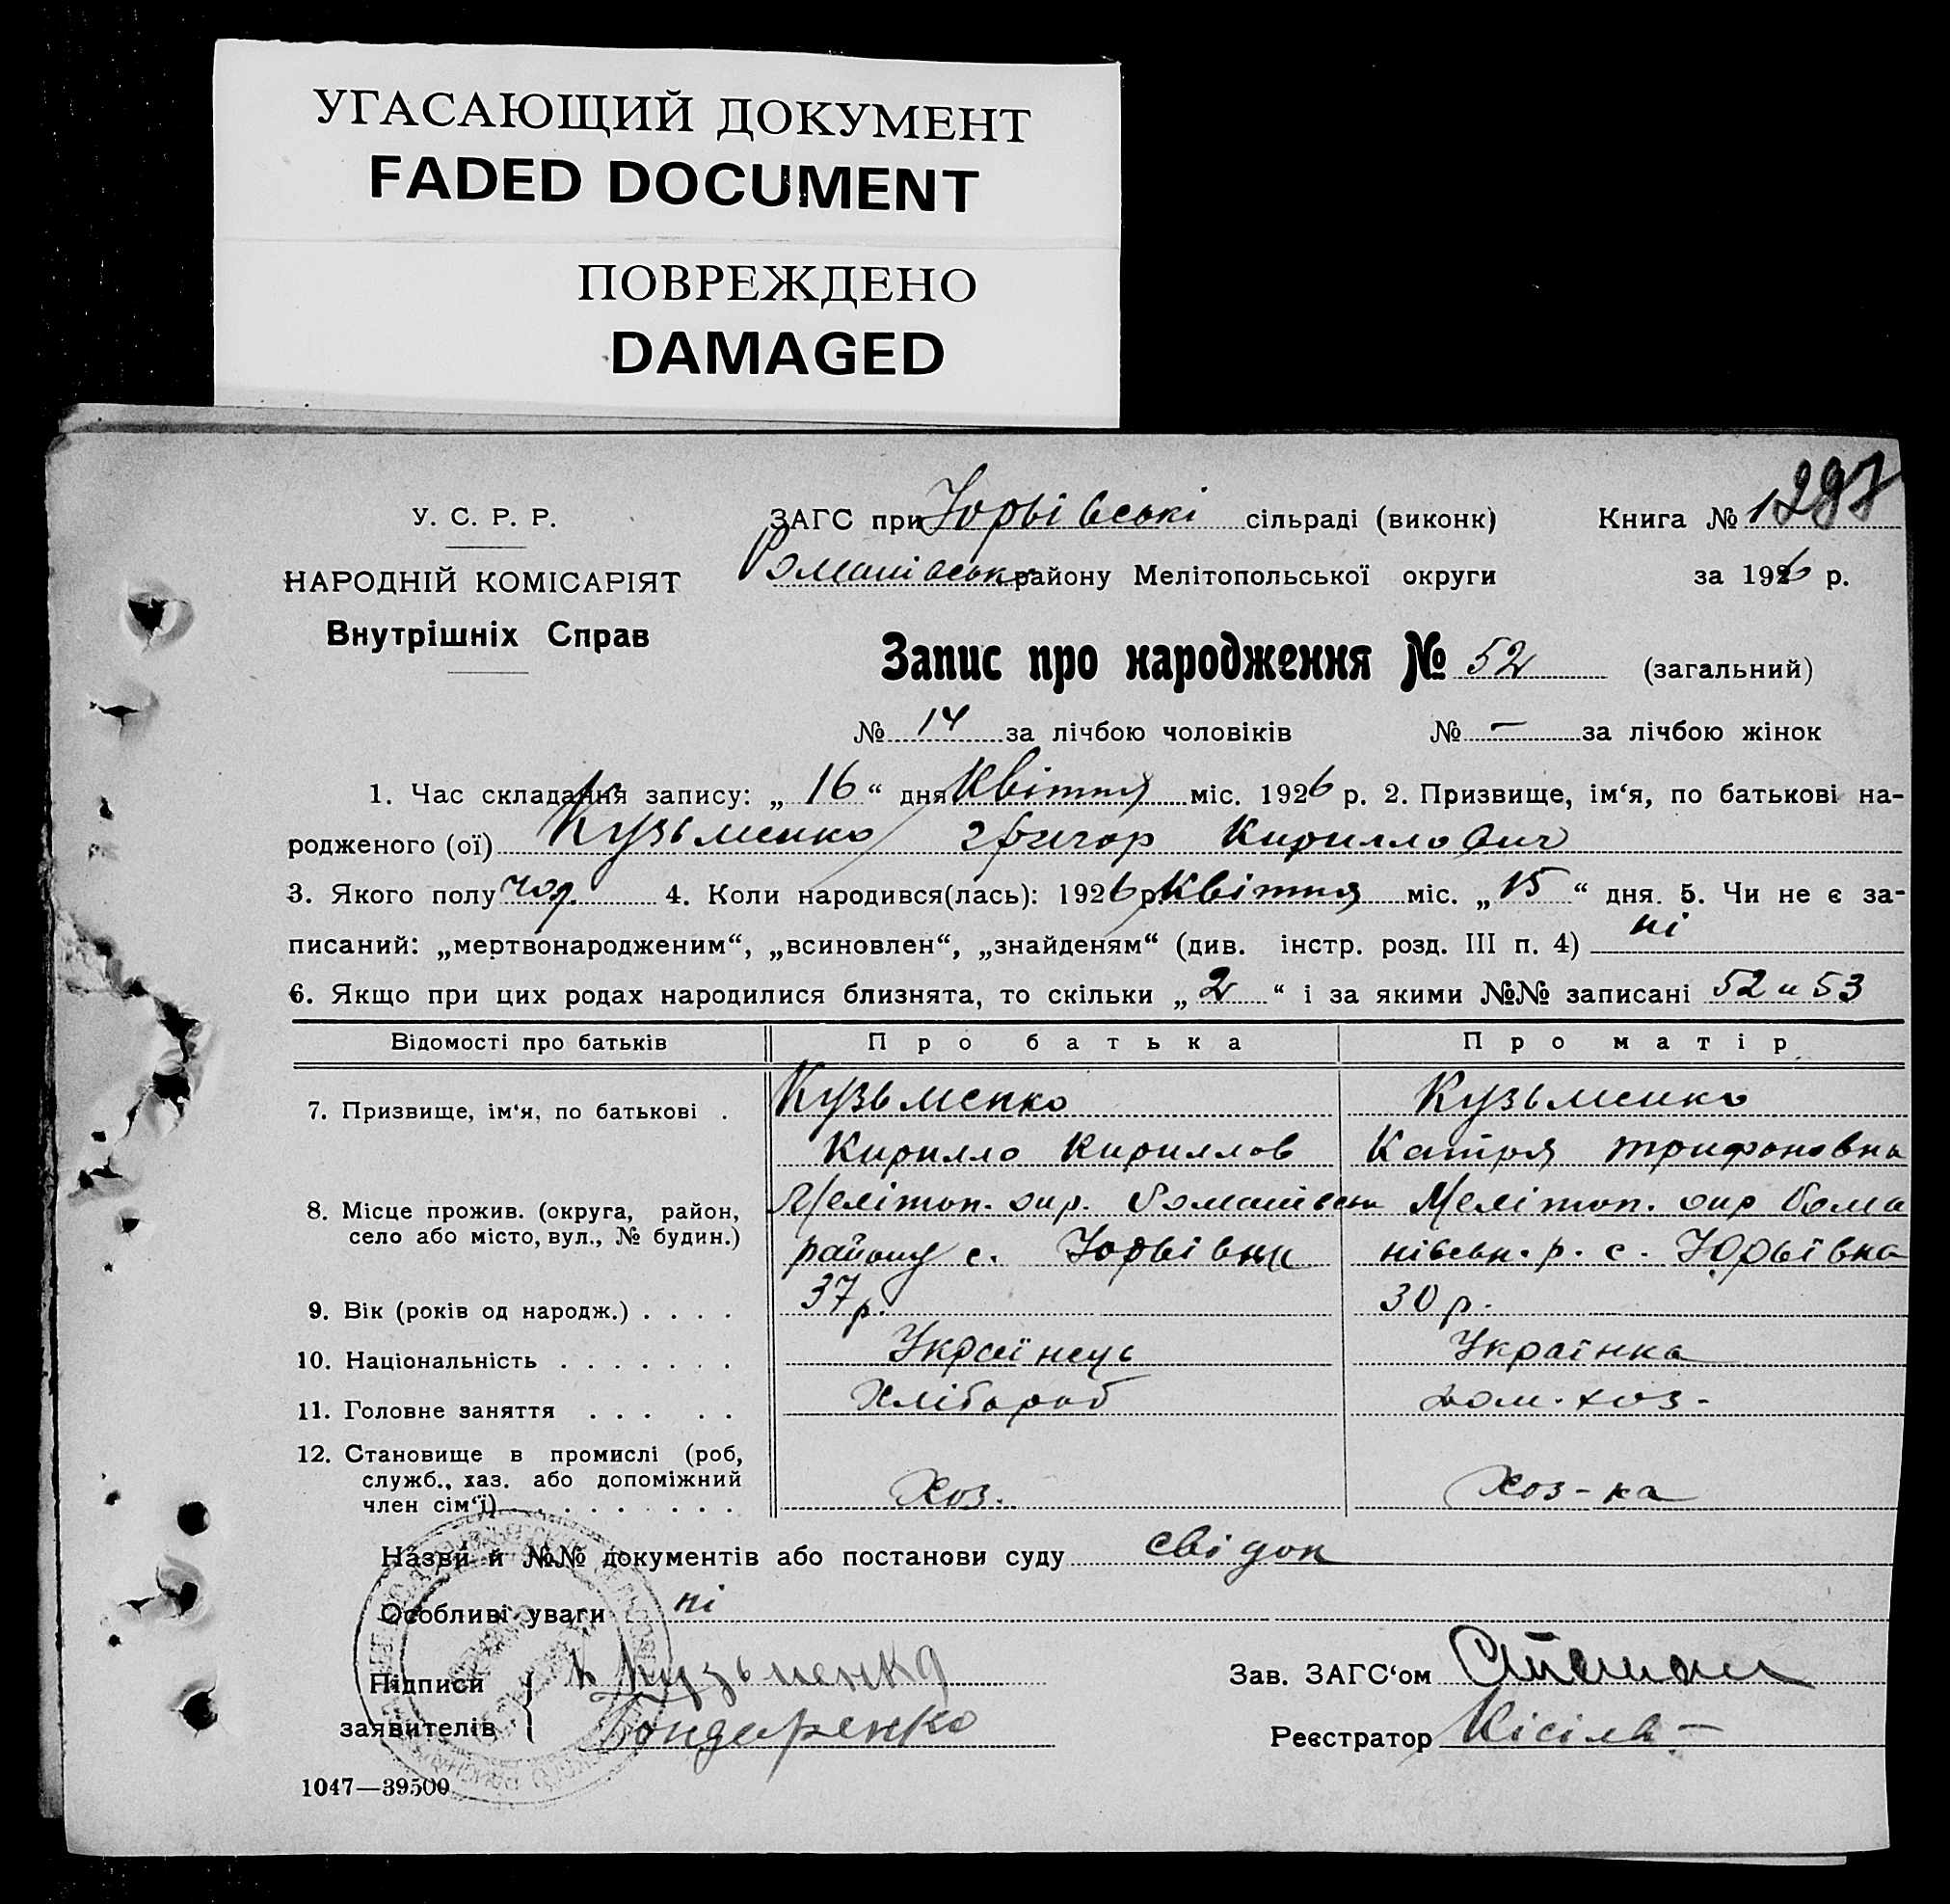 УГАСАЮЩИЙ ДОКУМЕНТ
FADED DOCUMENT
ПОВРЕЖДЕНО
DAMAGED
У. С. Р. Р.
НАРОДНІЙ КОМІСАРІЯТ
Внутрішніх Справ
ЗАГС при Юрьівські сільраді (виконк) Книга № 1
Романівськ району Мелітопольської округи за 1926 р.
Запис про народження № 52 (загальний)
№ 14 за лічбою чоловіків № — за лічбою жінок
1. Час складання запису: „ 16 “ дня Квітня міс. 1926 р. 2. Призвище, ім‘я, по батькові на-
родженого (ої) Кузьменко Григор Кириллович
3. Якого полу чол. 4. Коли народився(лась): 1926 р Квітня міс. „ 15 “ дня. 5. Чи не є за-
писаний: „мертвонародженим“, „всиновлен“, „знайденям“ (див. інстр. розд. III п. 4) ні
6. Якщо при цих родах народилися близнята, то скільки „ 2 “ і за якими №№ записані 52 и 53
Відомості про батьків Про батька Про матір
7. Призвище, ім‘я, по батькові . Кузьменко Кузьменко
Кирилло Кириллов Катря Трифоновна
8. Місце прожив. (округа, район, Мелітоп. окр. Романівськ Мелітоп. окр Рома
село або місто, вул., № будин.) району с. Юрьівка нівськ. р. с. Юрьівка
9. Вік (років од народж.) . . . . 37 р. 30 р.
10. Національність . . . . . . . Українець Українка
11. Головне заняття . . . . . Хлібороб дом. хоз-
12. Становище в промислі (роб,
служб., хаз. або допоміжний
член сім‘ї) . . . . . . . . . Хоз. Хоз-ка
Назви й №№ документів або постанови суду свідок
Особливі уваги ні
Підписи К Кузьменко Зав. ЗАГС‘ом
заявителів Бондаренко Реєстратор Кісіль
1047—39500